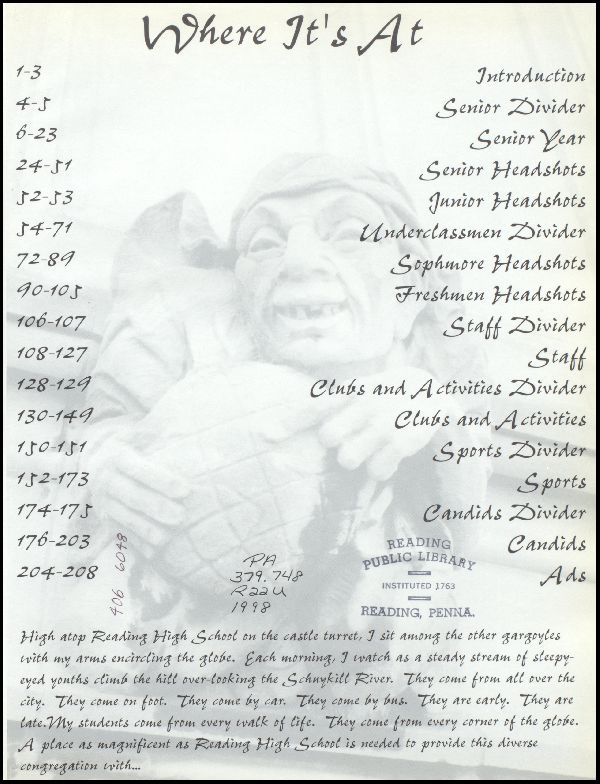 Where It's At
1-3 Introduction
4-5 Senior Divider
6-23 Senior Year
24-51 Senior Headshots
52-53 Junior Headshots
54-71 Underclassmen Divider
72-89 Sophmore Headshots
90-105 Freshmen Headshots
106-107 Staff Divider
108-127 Staff
128-129 Clubs and Activities Divider
130-149 Clubs and Activities
150-151 Sports Divider
152-173 Sports
174-175 Candids Divider
176-203 Candids
204-208 Ads
406 6048
PA
379.748
R22U
1998
READING
PUBLIC LIBRARY
INSTITUTED 1763
READING, PENNA.
High atop Reading High School on the castle turret, I sit among the other gargoyles
with my arms encircling the globe. Each morning, I watch as a steady stream of sleepy-
eyed youths climb the hill over-looking the Schuykill River. They come from all over the
city. They come on foot. They come by car. They come by bus. They are early. They are
late.My students come from every walk of life. They come from every corner of the globe.
A place as magnificent as Reading High School is needed to provide this diverse
congregation with...